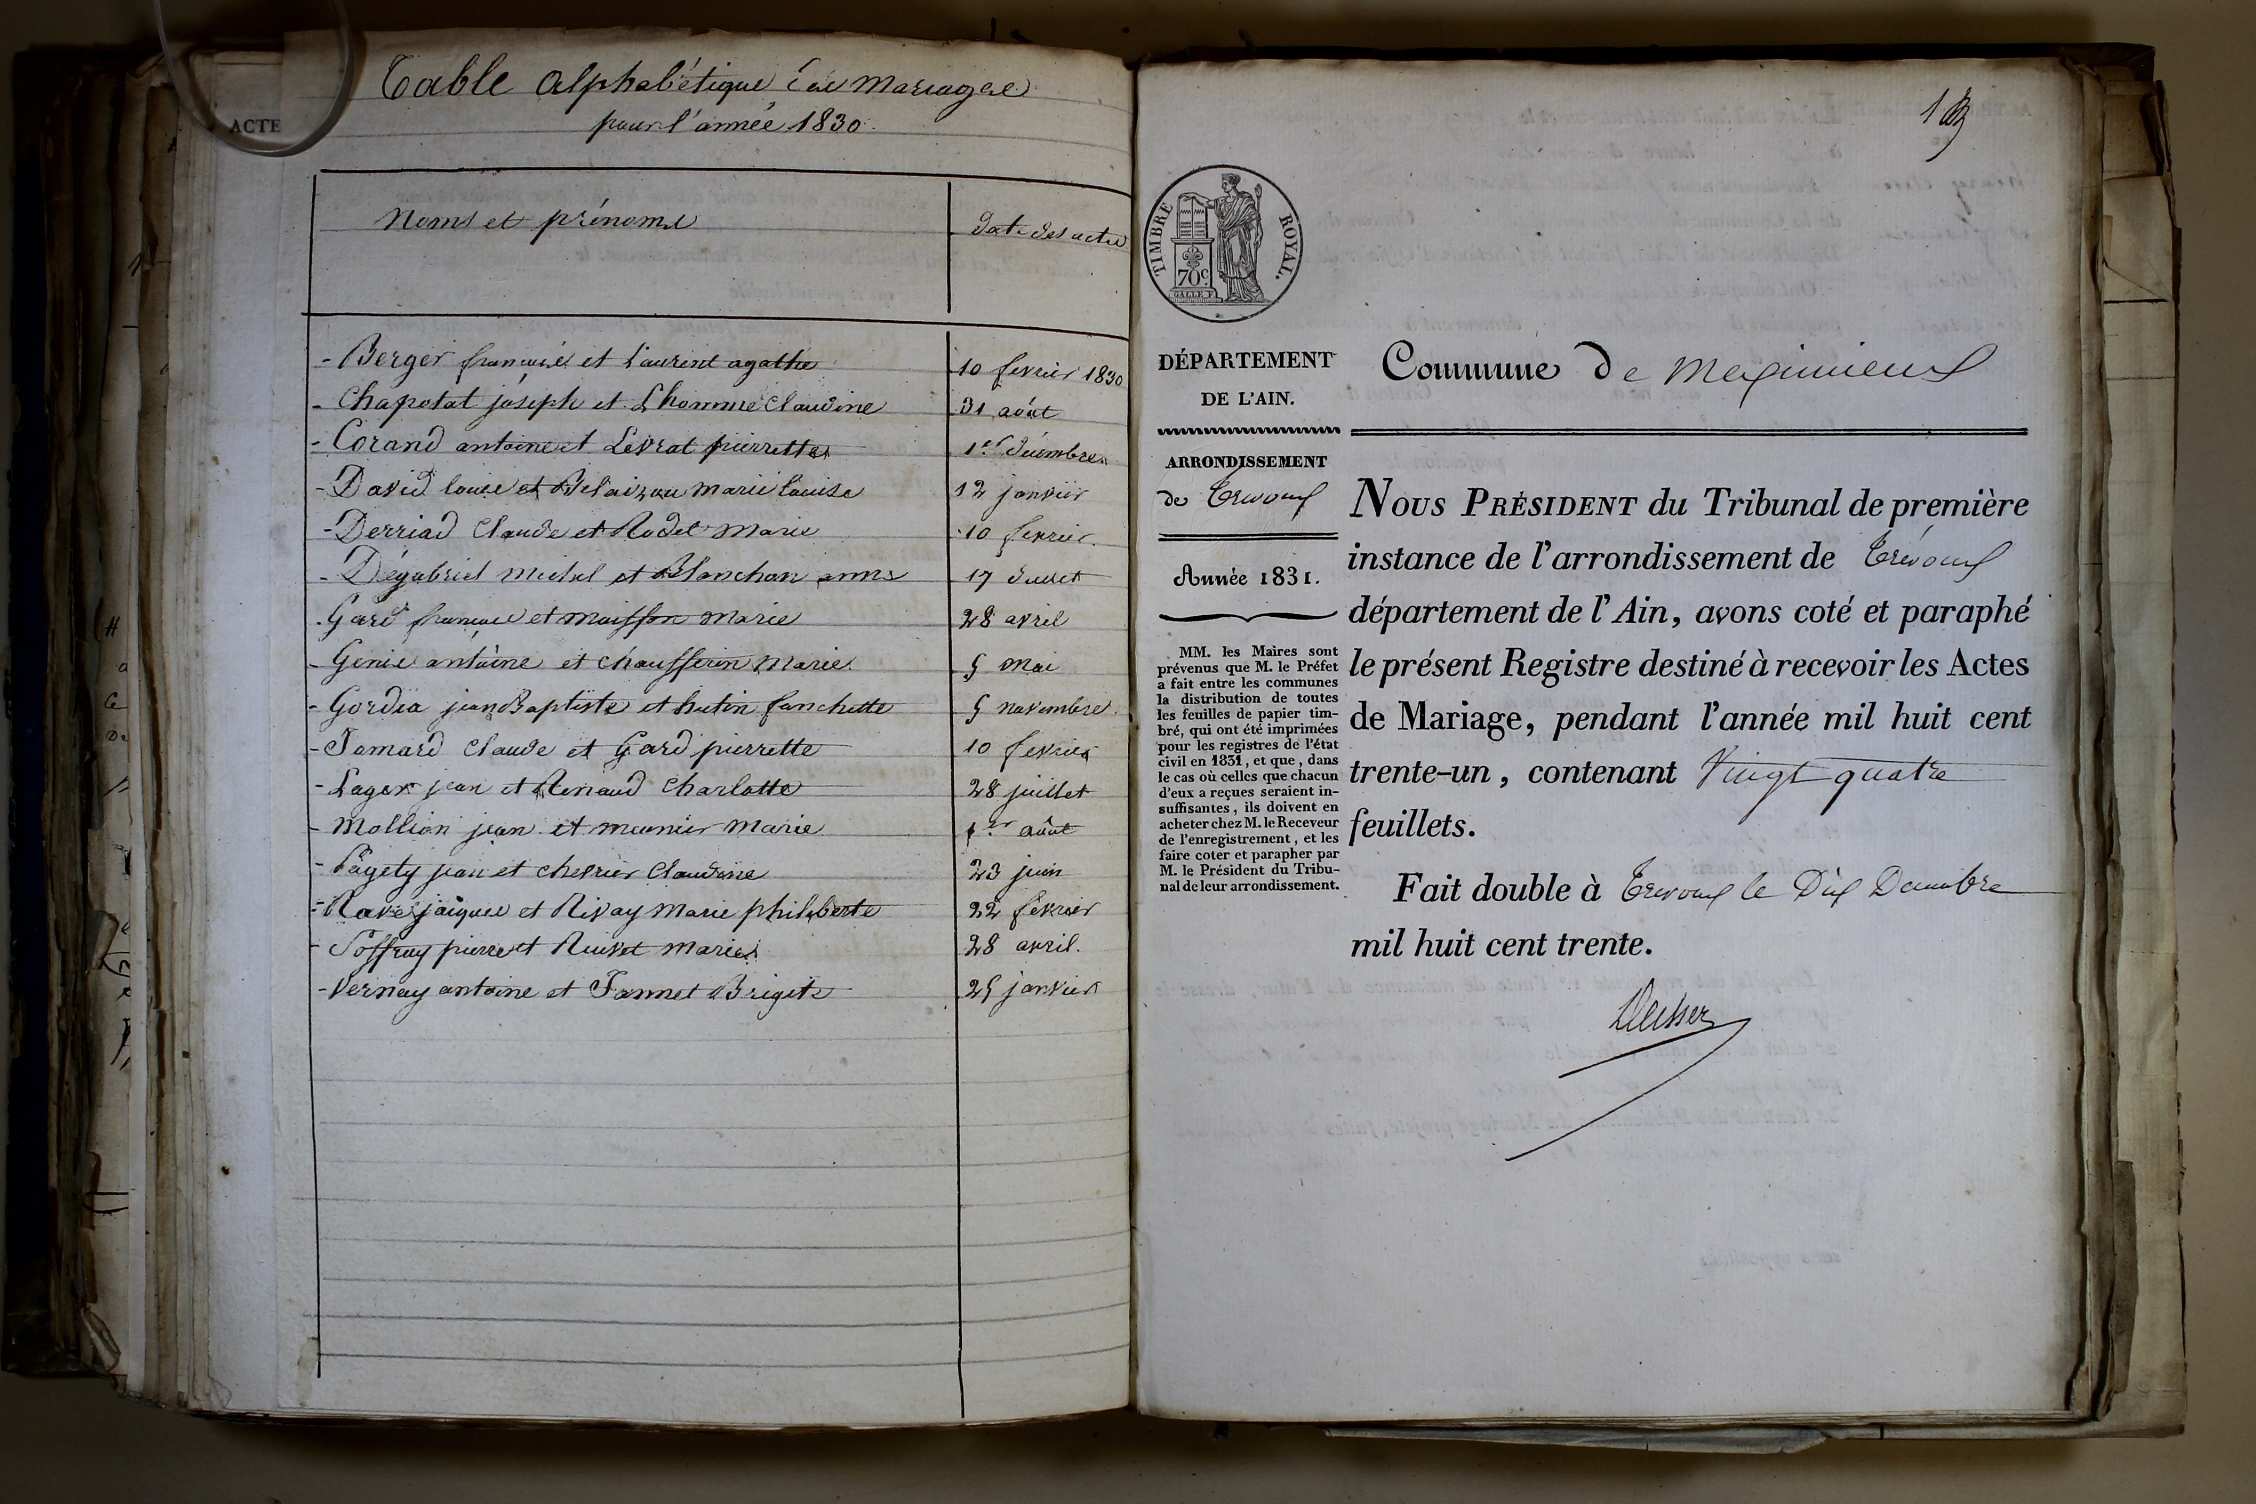 ACTE
Table alphabétique des mariages
pour l'année 1830.
Noms et prénoms
date des actes
- Berger françois et Laurent agathe 10 fevrier 1830
- Chapotat joseph et Lhomme Claudine 31 août
- Corand antoine et Levrat pierrette 1er décembre
- David louis et marie louise 12 janvier
- Derriad Claude et Rodet Marie 10 fevrier
- Dégabriel Michel et Blanchon anne 17
- Gard françois et maisson Marie 28 avril
- Genie antoine et Chausserin Marie 5 Mai
- Gordia jean Baptiste et hutin fanchette 5 novembre
- Jomard Claude et Gard pierrette 10 fevrier
- Lager jean et Renaud Charlotte 28 juillet
- Mollion jean et meunier Marie 1er août
- Pagety jean et chevrier Claudine 23 juin
- Ravé jacques et Rivay Marie philiberte 22 février
- Soffray pierre et Ruivet Marie 28 avril.
- Vernay antoine et Jannet Brigite 25 janvier
1er
TIMBRE ROYAL.
70c
GALLE F.
DÉPARTEMENT
DE L'AIN.
Commune de Meximieux
ARRONDISSEMENT
de Trevoux
Année 1831.
MM. les Maires sont
prévenus que M. le Préfet
a fait entre les communes
la distribution de toutes
les feuilles de papier tim-
bré, qui ont été imprimées
pour les registres de l'état
civil en 1831, et que, dans
le cas où celles que chacun
d'eux a reçues seraient in-
suffisantes, ils doivent en
acheter chez M. le Receveur
de l'enregistrement, et les
faire coter et parapher par
M. le Président du Tribu-
nal de leur arrondissement.
NOUS PRÉSIDENT du Tribunal de première
instance de l'arrondissement de Trévoux
département de l'Ain, avons coté et paraphé
le présent Registre destiné à recevoir les Actes
de Mariage, pendant l'année mil huit cent
trente-un, contenant Vingt quatre
feuillets.
Fait double à Trevoux le Dix Decembre
mil huit cent trente.